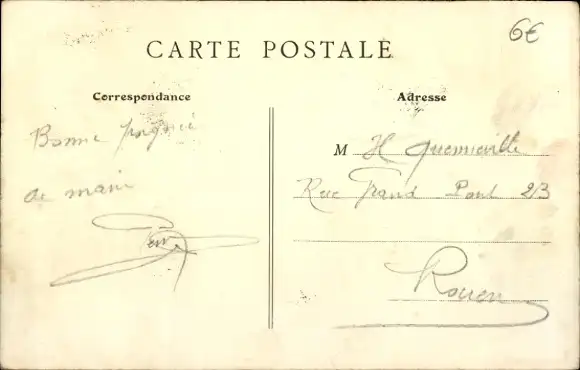 6€
CARTE POSTALE
Correspondance
Bonne poignée
de main
Adresse
M H Quenneville
Rue Grand Pont 23
Rouen